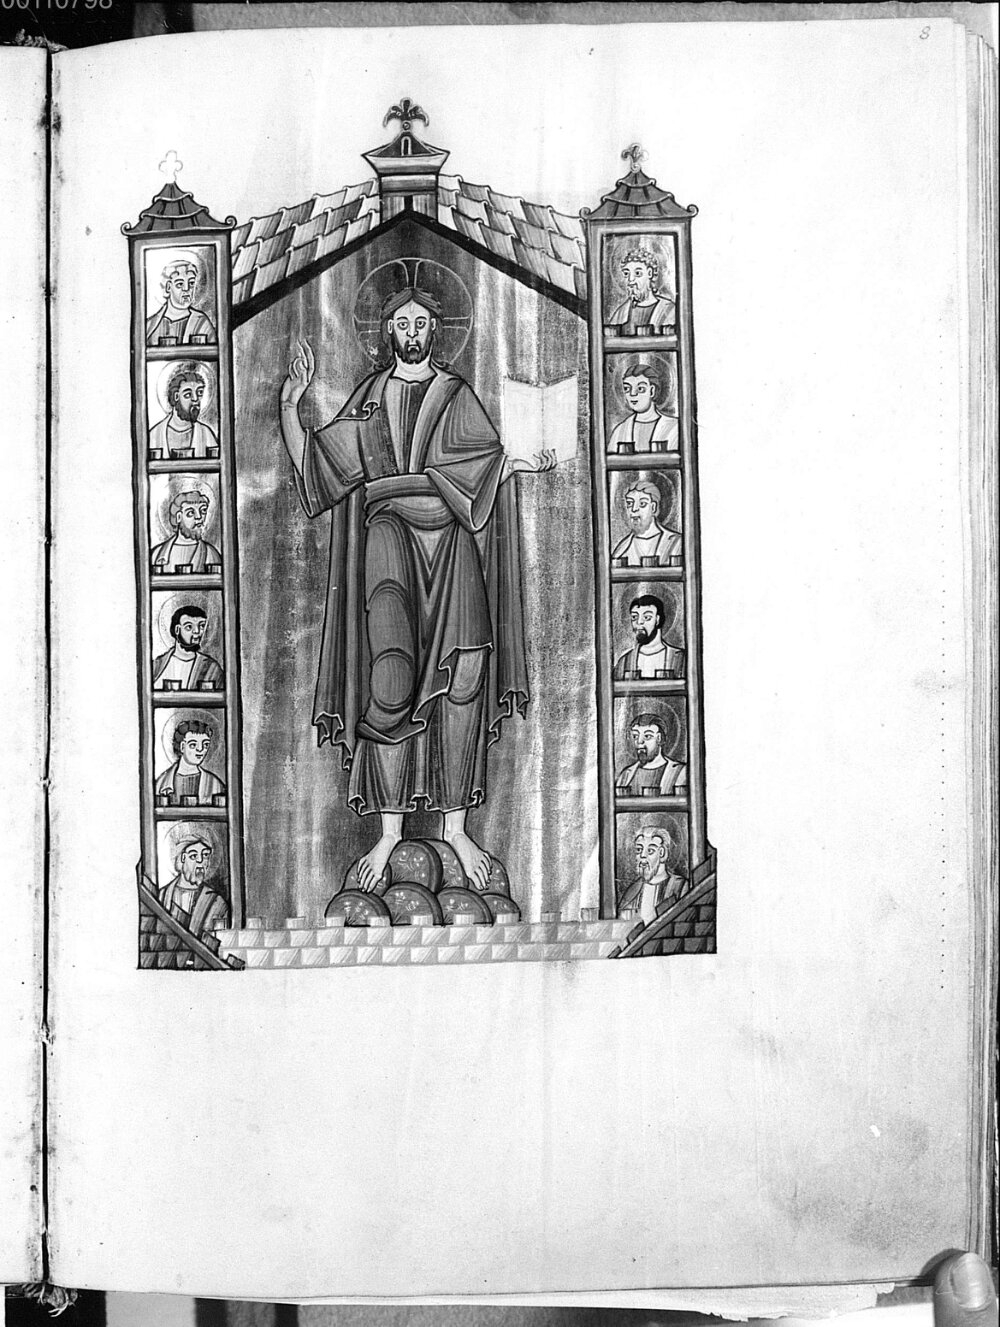 00110798
8